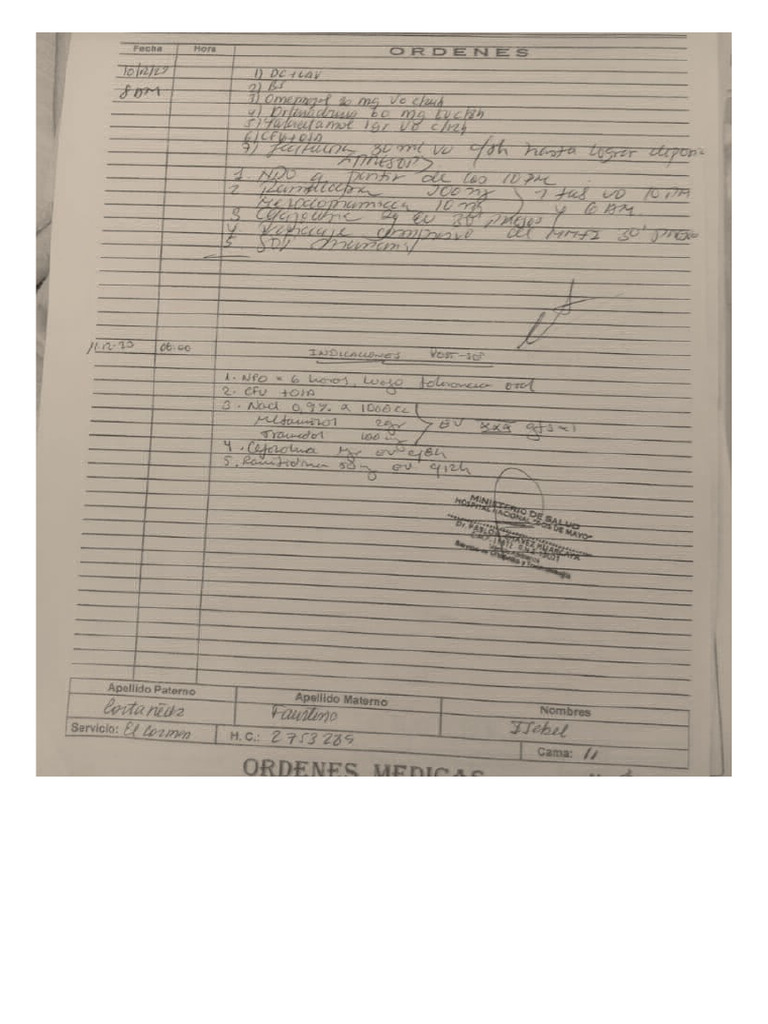 Fecha Hora ORDENES
10/12/20 1) DC + LAV
8 AM 2) BS
3) Omeprazol 20 mg VO c/24h
4) 60 mg EV c/8h
5) Paracetamol 1gr VO c/12h
6) CFV + OIA
7) Lactulosa 30 ml VO c/8h hasta lograr
1. NPO a partir de las 10 PM
2 Ranitidina 300 mg 1 tab VO 10 PM
Metoclopramida 10 mg y 6 AM
3 Cefazolina 2g EV 30'
4 Vendaje compresivo de 30'
5 SOP
11-12-20 06:00 INDICACIONES POST-SOP
1. NPO x 6 horas, luego tolerancia oral
2. CFV + OIA
3. Nacl 0,9% x 1000cc
Metamizol 2gr EV xxx gts x 1
Tramadol 100 mg
4. Cefazolina 1gr EV c/8h
5. Ranitidina 50 mg EV c/12h
MINISTERIO DE SALUD
HOSPITAL NACIONAL "DOS DE MAYO"
Dr. PABLO CHAVEZ HUARCAYA
Servicio de Ortopedia y Traumatología
Apellido Paterno Apellido Materno Nombres
Costañeda Faustino Isabel
Servicio: El Carmen H. C.: 2753289 Cama: 11
ORDENES MEDICAS